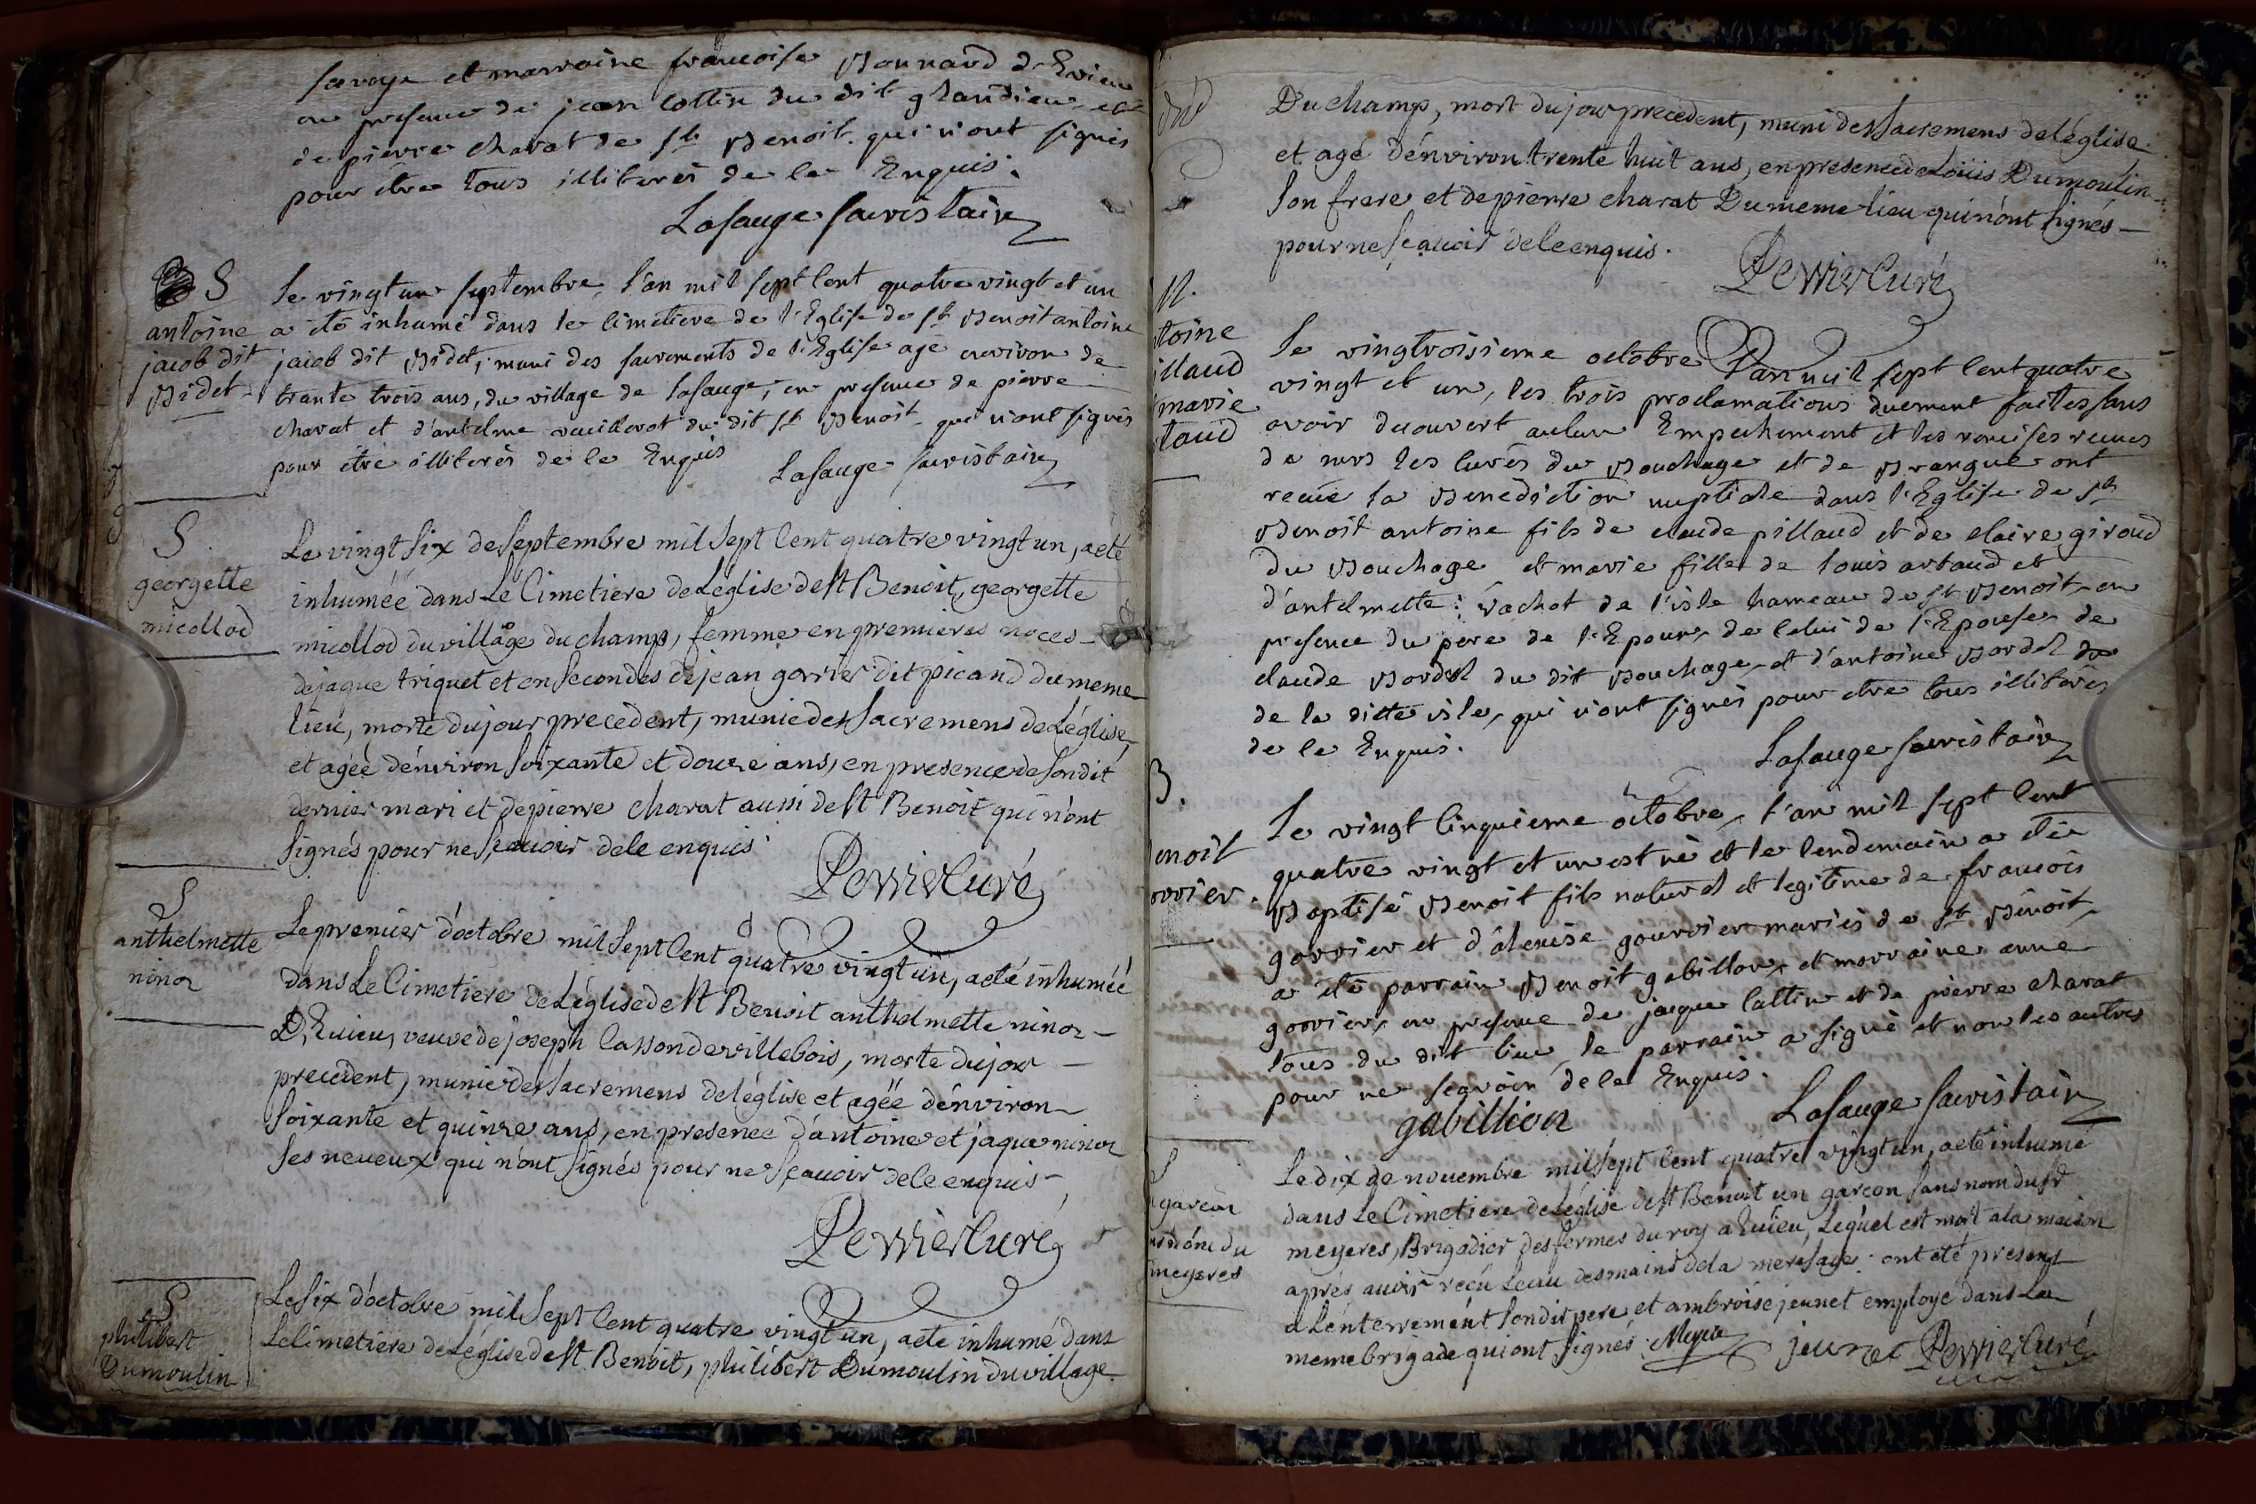 savoye et marraine francoise Bonnard d'Evieu
en presence de jean cottin du dit glandieu et
de pierre charat de st Benoit qui n'ont signés
pour être tous illiterés de ce Enquis.
Lasauge sacristain
S
antoine
jacob dit
Bidet
Le vingt un septembre, l'an mil sept cent quatre vingt et un
a été inhumé dans le cimetiere de l'Eglise de st Benoit antoine
jacob dit Bidet, muni des sacrements de l'Eglise agé environ de
trante trois ans, du village de lasauge, en presence de pierre
charat et d'antelme du dit st Benoit qui n'ont signés
pour etre illiterés de ce Enquis
Lasauge sacristain
S
georgette
micollod
Le vingt six de septembre mil sept cent quatre vingt un, a eté
inhumée dans Le Cimetiere de Léglise de st Benoit, georgette
micollod du village du champ, femme en premieres noces
de jaque triquet et en secondes de jean gorrier dit picand du meme
lieu, morte du jour precedent, munie des sacremens de Léglise
et agée d'énviron soixante et douze ans, en presence de son dit
dernier mari et de pierre charat aussi de st Benoit qui n'ont
signés pour ne sçavoir de ce enquis
Perrier Curé
S
anthelmette
ninoz
Le premier d'octobre mil sept cent quatre vingt un, a eté inhumée
dans Le Cimetiere de Léglise de st Benoit anthelmette ninoz
D'Evieu, veuve de joseph de villebois, morte du jour
precedent, munie des sacremens de léglise et agée d'énviron
soixante et quinze ans, en presence d'antoine et jaque ninoz
ses neveux qui n'ont signés pour ne sçavoir de ce enquis
Perrier Curé
S
philibert
Dumoulin
Le six d'octobre mil sept cent quatre vingt un, a eté inhumé dans
Le cimetiere de Léglise de st Benoit, philibert Dumoulin du village
Du champ, mort du jour precedent, muni des sacremens de léglise
et agé d'énviron trente huit ans, en presence de Loüis Dumoulin
son frere et de pierre charat Du meme lieu qui n'ont signés
pour ne sçavoir de ce enquis.
Perrier Curé
M.
toine
illaud
marie
taud
Le vingtroisieme octobre l'an mil sept cent quatre
vingt et un, les trois proclamations duement faites sans
avoir decouvert aucun Empechement et les remises reçues
de mrs les curés du Bouchage et de Brangue ont
reçue la Benediction nuptiale dans l'Eglise de st
Benoit antoine fils de claude pillaud et de claire giroud
du Bouchage et marie fille de louis artaud et
d'antelmette vachot de l'isle hameau de st Benoit en
presence du pere de l'Epoux, de celui de l'Epouse, de
claude Bordel du dit Bouchage et d'antoine Bordel
de la ditte isle, qui n'ont signés pour etre tous illiterés
de ce Enquis.
Lasauge sacristain
B.
enoit
orrier.
Le vingt cinquieme octobre, l'an mil sept cent
quatre vingt et un est né et le lendemain a été
Baptisé Benoit fils naturel et legitime de francois
gorrier et d'alexise gourrier mariés de st Benoit,
a été parrain Benoit gabillon, et marraine anne
gorrier, en presence de jaque cattin et de pierre charat
tous du dit lieu, le parrain a signé et non les autres
pour ne sçavoir de ce Enquis.
gabillion
Lasauge sacristain
S
garcon
du
meyeres
Le dix de novembre mil sept cent quatre vingt un, a eté inhumé
dans Le Cimetiere de Léglise de st Benoit un garcon sans nom du sr
meyeres, Brigadier des fermes du roy a Evieu, Lequel est mort a la maison
aprés avoir reçu l'eau des mains de la mere sage: ont eté presens
a L'énterrement son dit pere et ambroise jeunet employé dans La
meme brigade qui ont signés. Meyere jeunet Perrier Curé